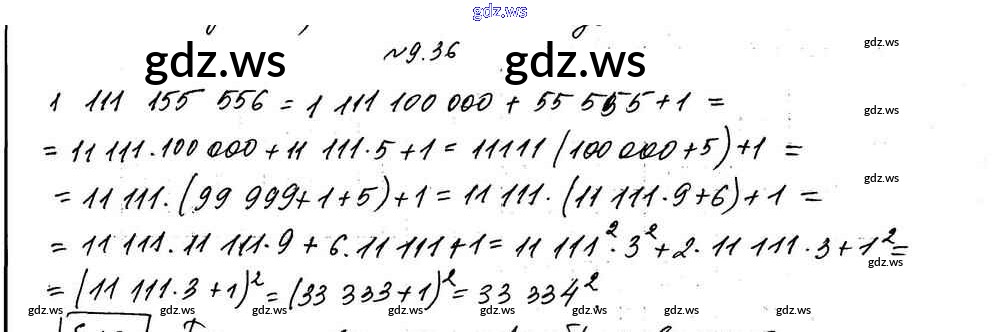 gdz.ws
№9.36
gdz.ws gdz.ws gdz.ws
1 111 155 556 = 1 111 100 000 + 55 555 + 1 =
gdz.ws
= 11 111 · 100 000 + 11 111 · 5 + 1 = 11111 (100 000 + 5) + 1 =
gdz.ws
= 11 111 · (99 999 + 1 + 5) + 1 = 11 111 · (11 111 · 9 + 6) + 1 =
= 11 111 · 11 111 · 9 + 6 · 11 111 + 1 = 11 111² · 3² + 2 · 11 111 · 3 + 1² =
gdz.ws
= (11 111 · 3 + 1)² = (33 333 + 1)² = 33 334²
gdz.ws gdz.ws gdz.ws gdz.ws gdz.ws gdz.ws gdz.ws